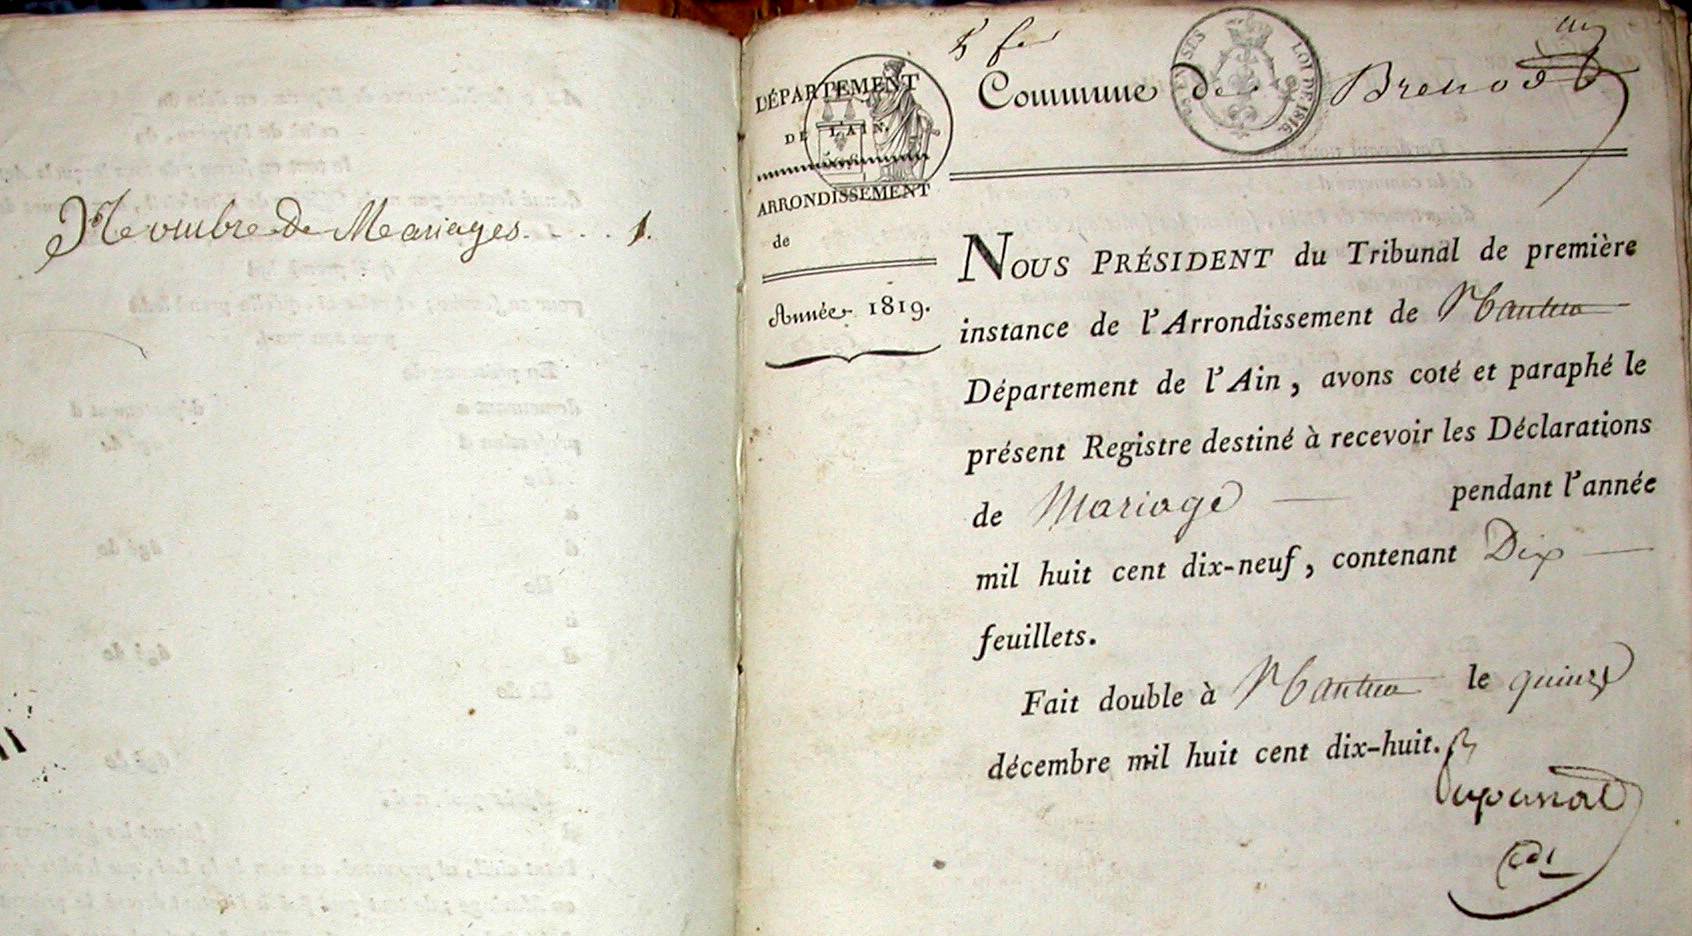 Nombre de Mariages. . . . 1.
DÉPARTEMENT
DE L'AIN.
ARRONDISSEMENT
de
Année 1819.
5 fer
Commune de Brenod
LOI DE 1816
NOUS PRÉSIDENT du Tribunal de première
instance de l'Arrondissement de Nantua
Département de l'Ain, avons coté et paraphé le
présent Registre destiné à recevoir les Déclarations
de Mariage pendant l'année
mil huit cent dix-neuf, contenant Dix
feuillets.
Fait double à Nantua le quinze
décembre mil huit cent dix-huit.